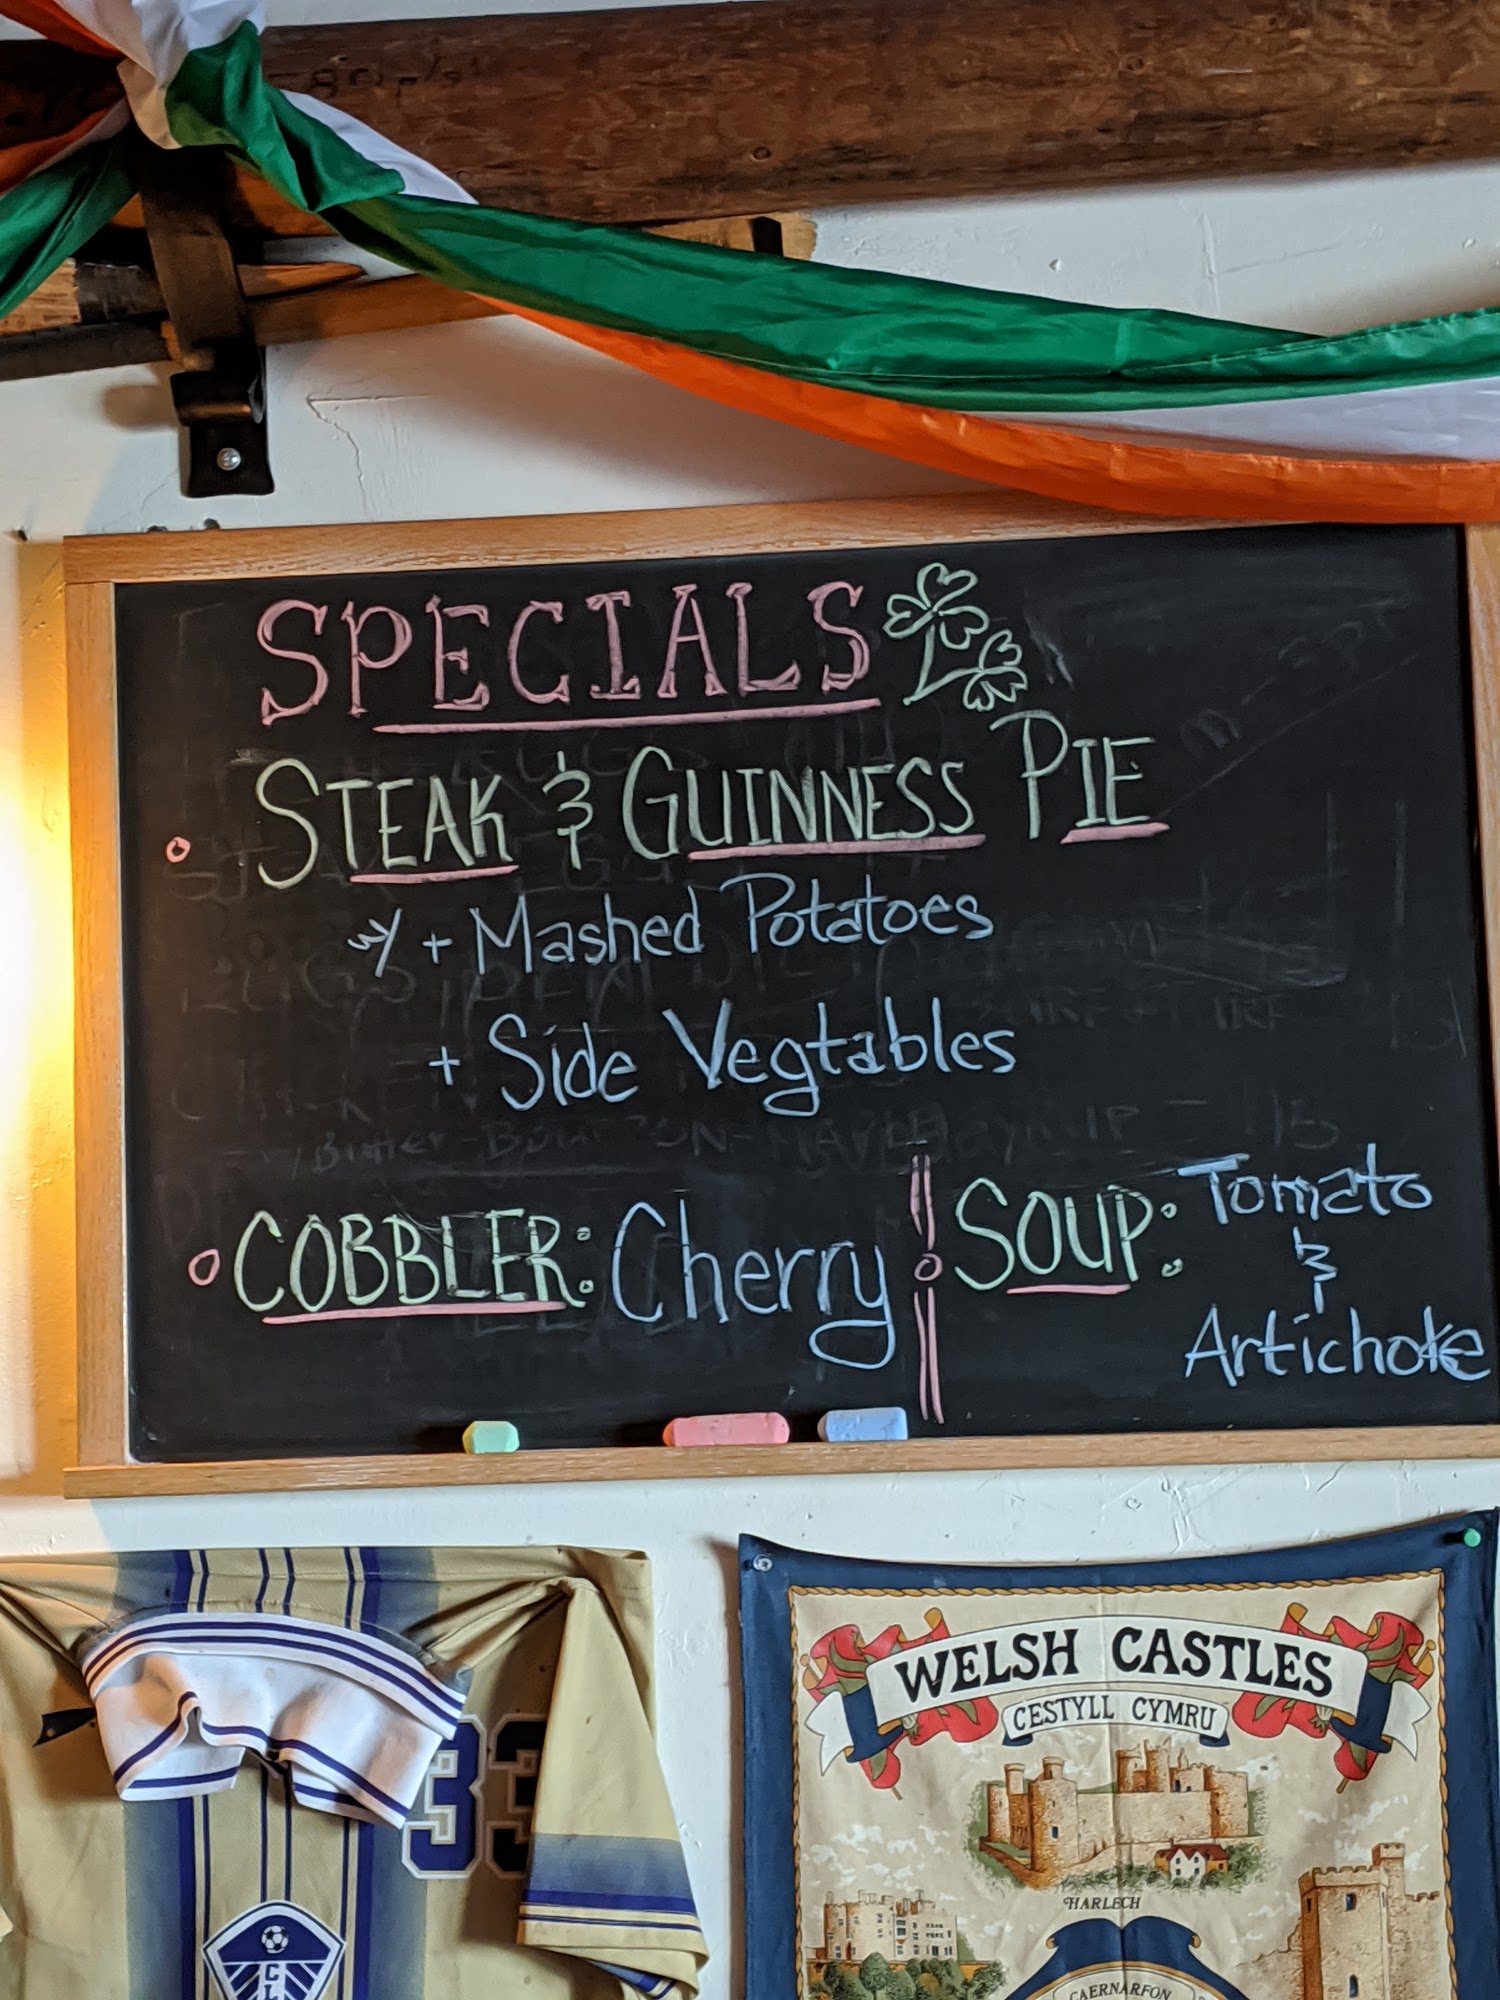 SPECIALS
STEAK & GUINNESS PIE
w/ + Mashed Potatoes
+ Side Vegtables
COBBLER: Cherry
SOUP: Tomato
&
Artichoke
33
WELSH CASTLES
CESTYLL CYMRU
HARLECH
CAERNARFON